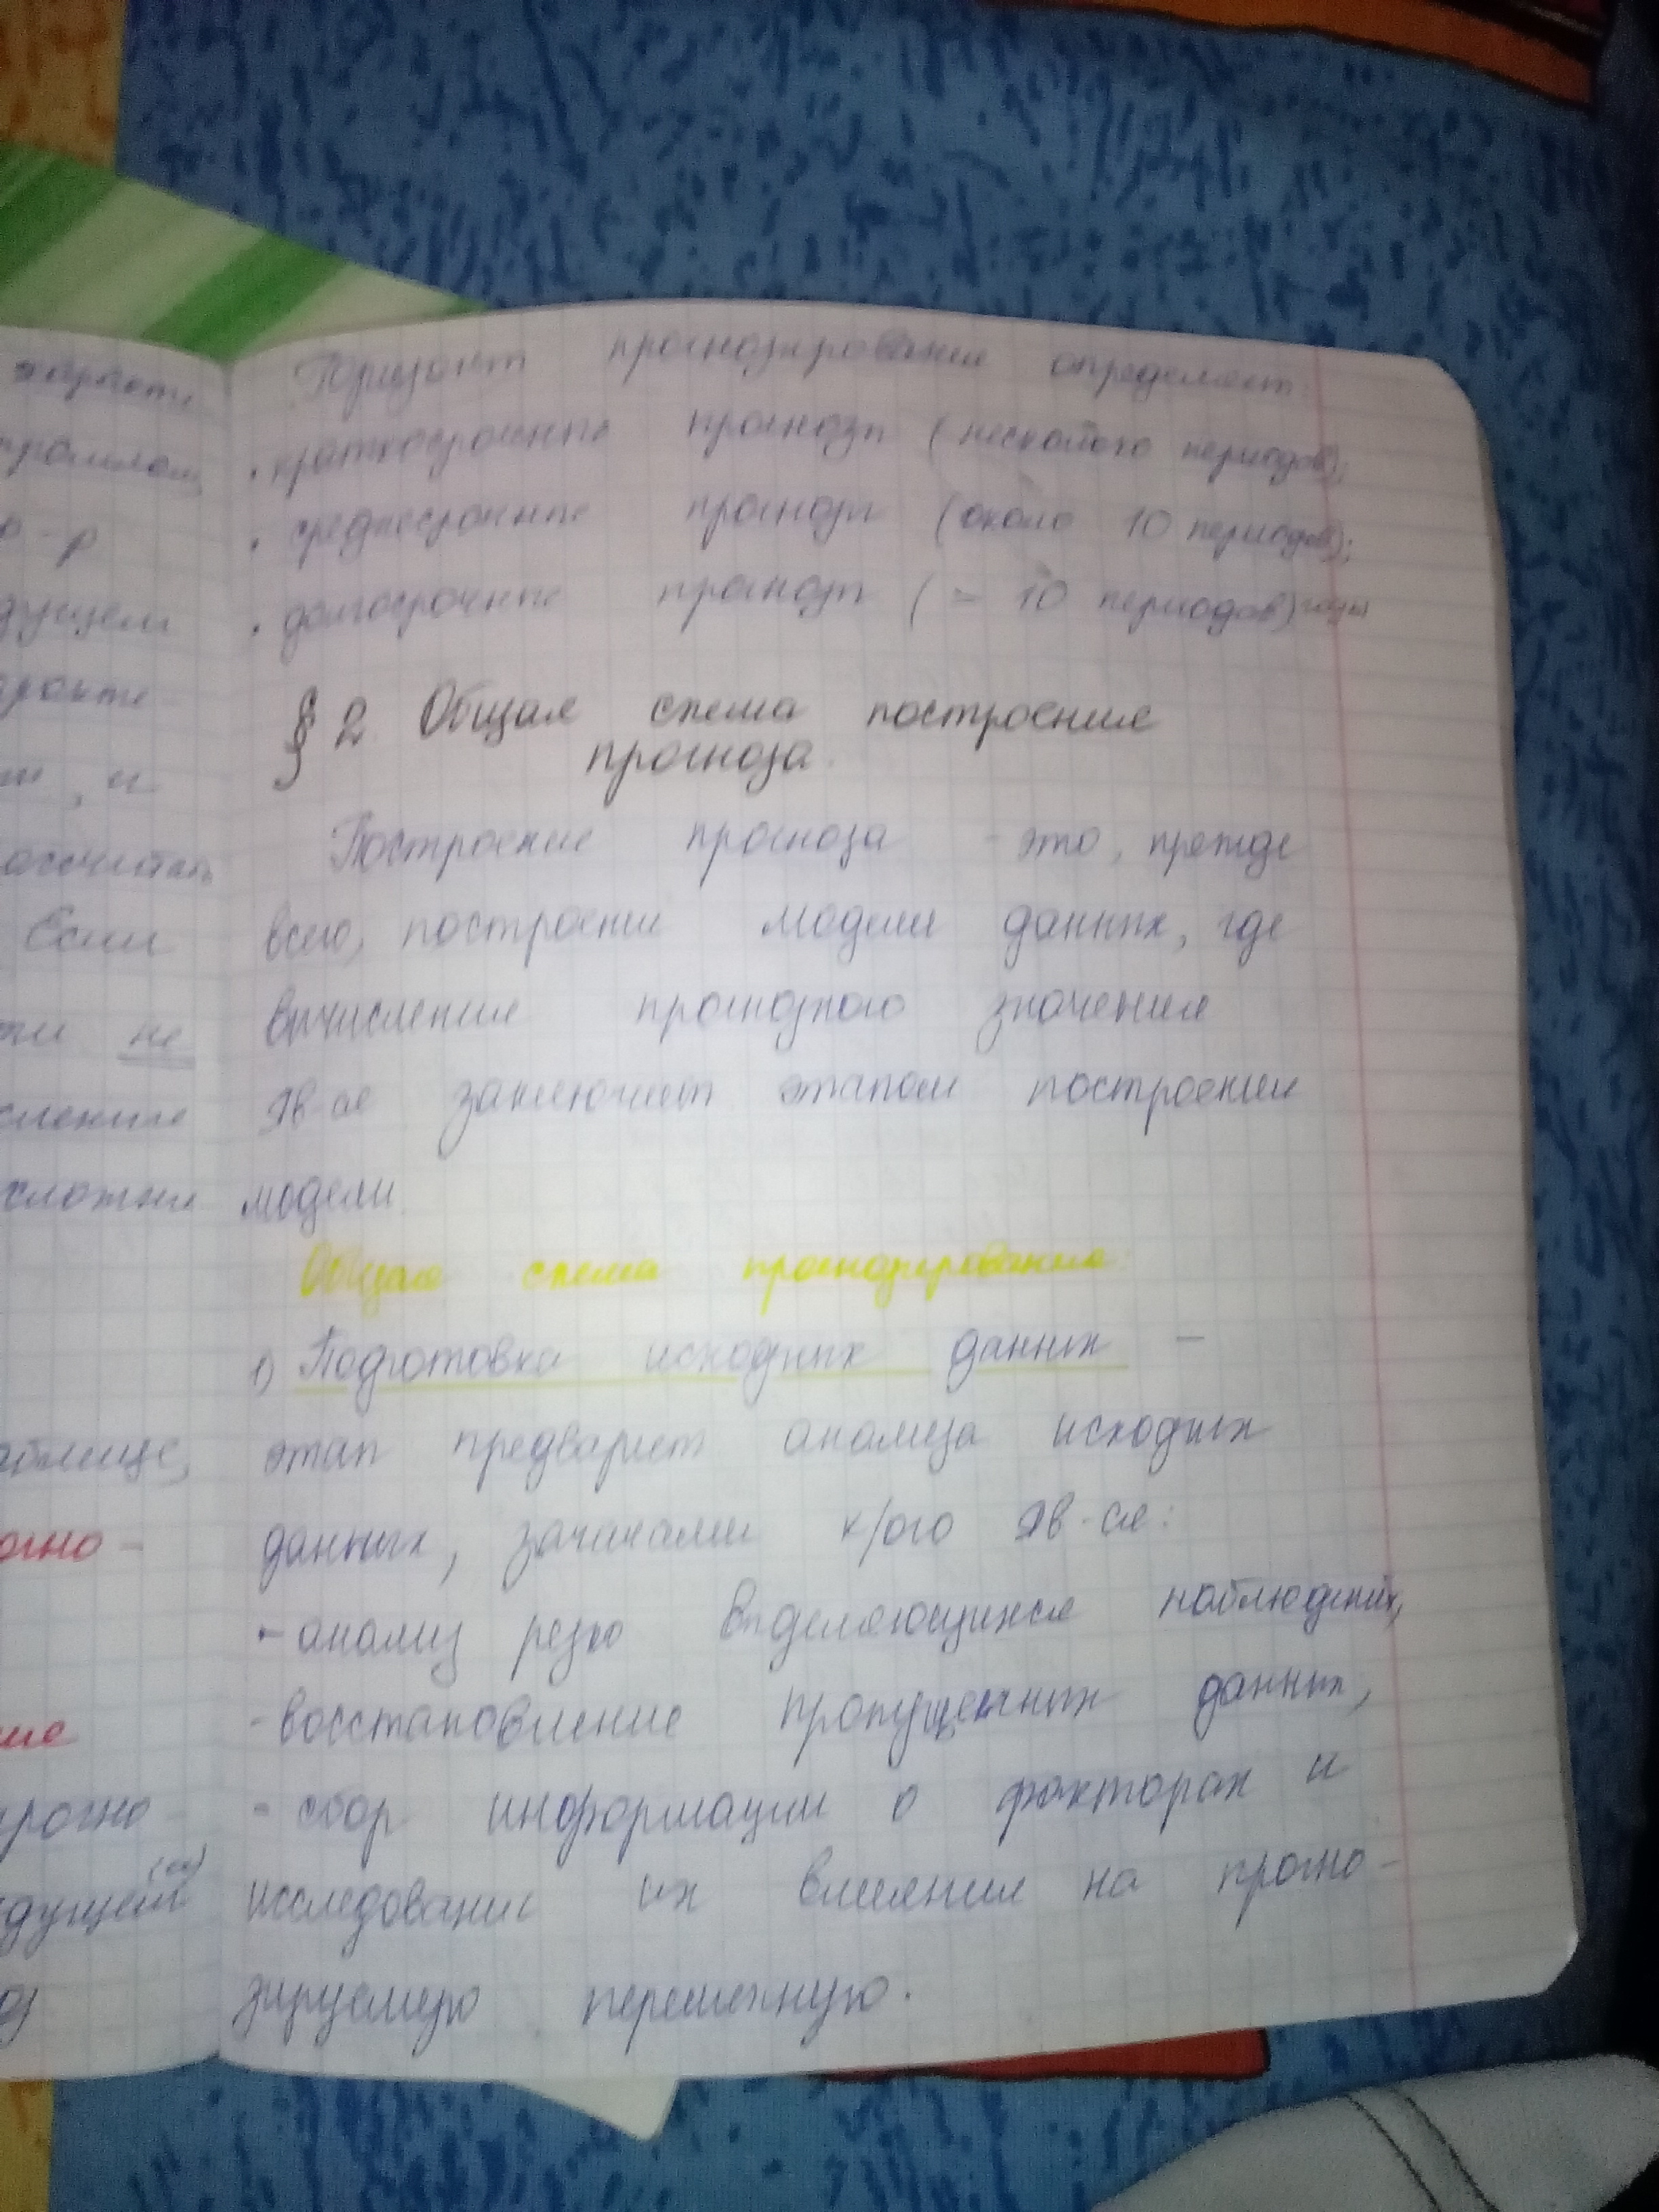 Горизонт прогнозирования определяет:
• краткосрочные прогнозы (несколько периодов);
• среднесрочные прогнозы (около 10 периодов);
• долгосрочные прогнозы (> 10 периодов)
§ 2. Общая схема построения
прогноза.
Построение прогноза - это, прежде
всего, построение модели данных, где
вычисление прогнозного значения
яв-ся заключит этапом построения
модели.
Общая схема прогнозирования:
1) Подготовка исходных данных –
этап предварит анализа исходных
данных, задачами к/ого яв-ся:
- анализ резко выделяющихся наблюдений,
- восстановление пропущенных данных,
- сбор информации о факторах и
исследование их влияния на прогно-
зируемую переменную.
о-р
дущем
т, и
Если
не
сложные
аблице,
огно-
ие
прогно-
(ем)
дущем